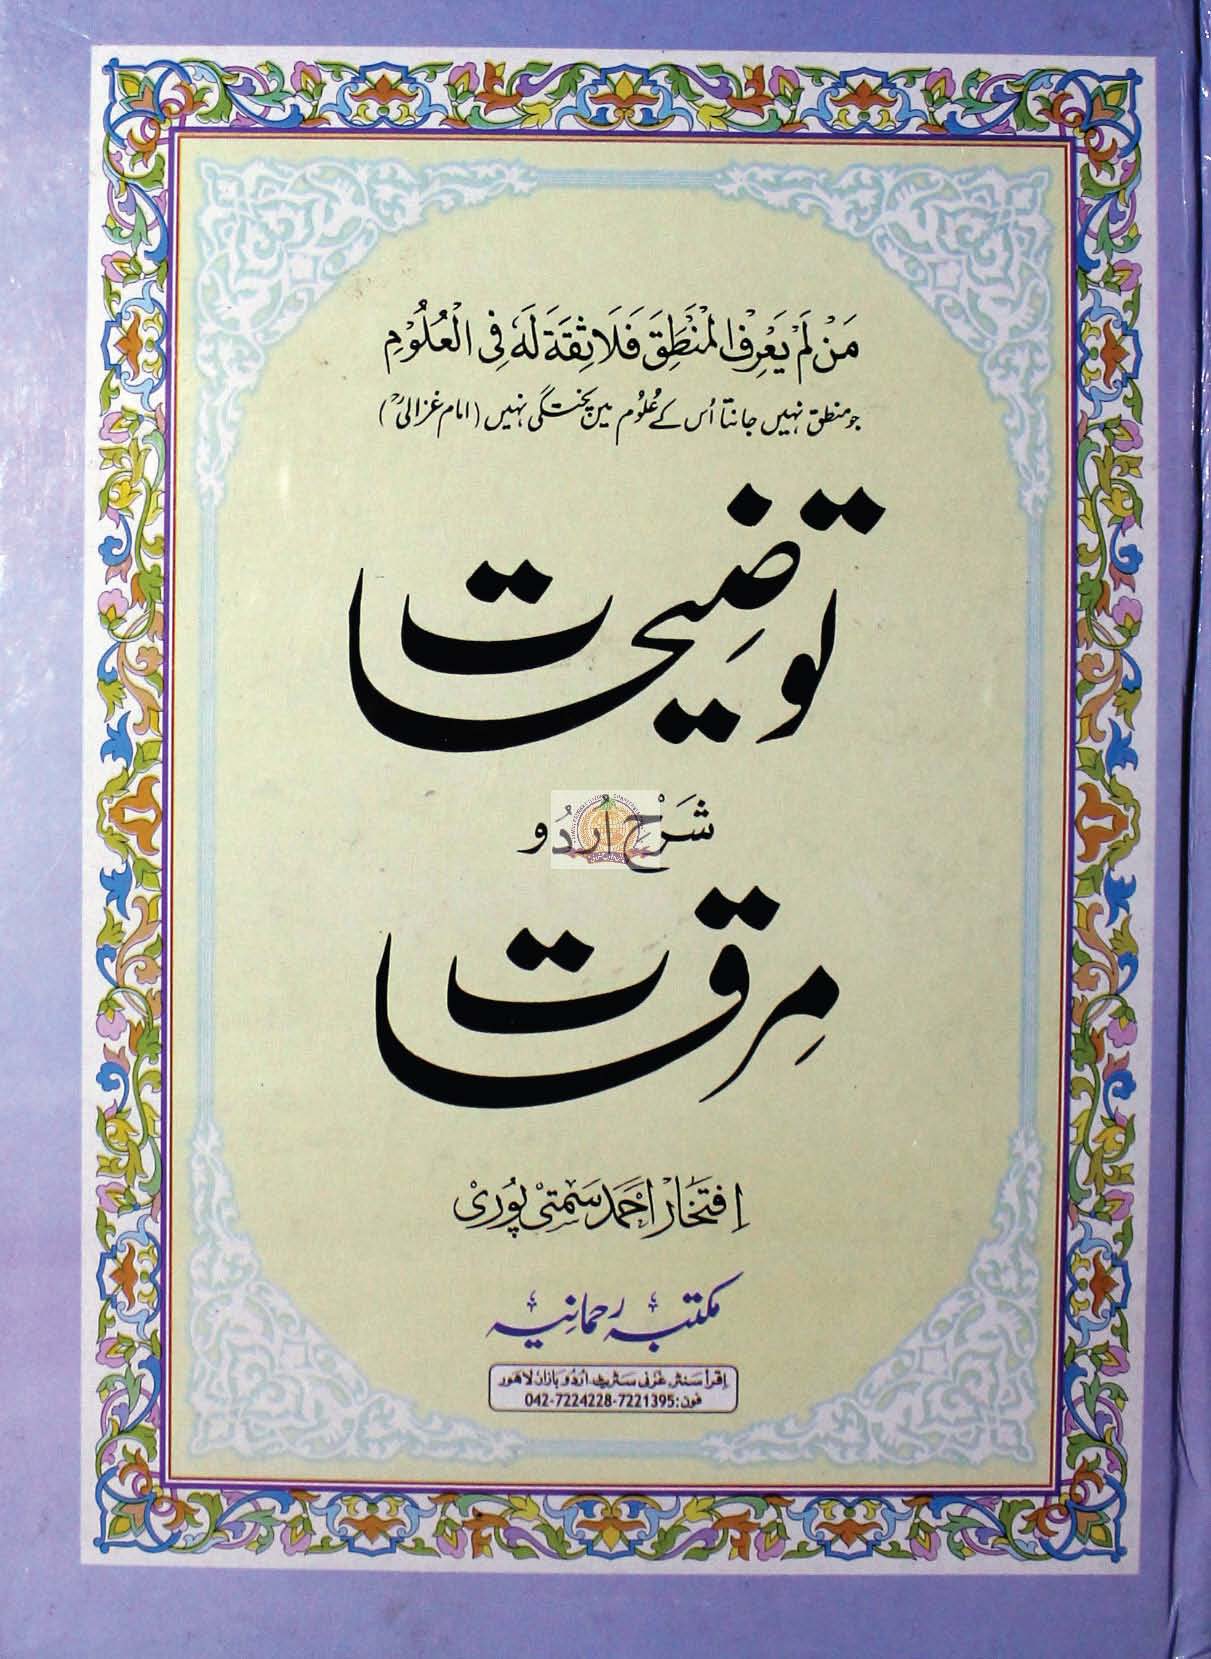 مَنْ لَمْ يَعْرِفِ الْمَنْطِقَ فَلَا ثِقَةَ لَهٗ فِی الْعُلُوْمِ
جو منطق نہیں جانتا اُس کے عُلُوم میں پختگی نہیں (امام غزالیؒ)
توضیحات
شَرْح اُردُو
مِرقات
اِفتخَار احمَد سَمَستی پُوری
مکتبہ رحمانیہ
اِقرأ سَنٹر غَزنی سَٹریٹ اُردُو بَازار لاہور
فون: 042-7224228-7221395